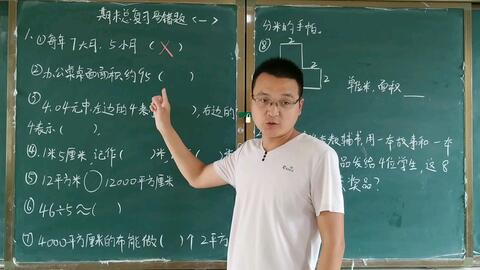 期末总复习易错题(一)
1.①每年7大月.5小月 ( × )
②办公桌桌面面积约95( )
③4.04元中,左边的4表( ),右边的
4表示( ).
④1米5厘米,记作( )米
⑤12平方米○12000平方厘米
⑥46÷5≈( )
⑦4000平方厘米的布能做( )个2平方
分米的手帕。
⑧
2
2
2
单位:米,面积
本故事和一本
品发给4位学生,这8
奖品?